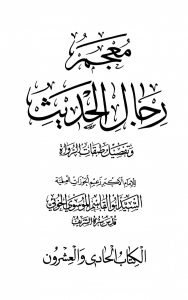 معجم
رجال الحديث
وتفصيل طبقات الرواة
للإمام الأكبر زعيم الحوزات العلمية
السيد أبو القاسم الموسوي الخوئي
قدس سره الشريف
الكتاب الحادي والعشرون